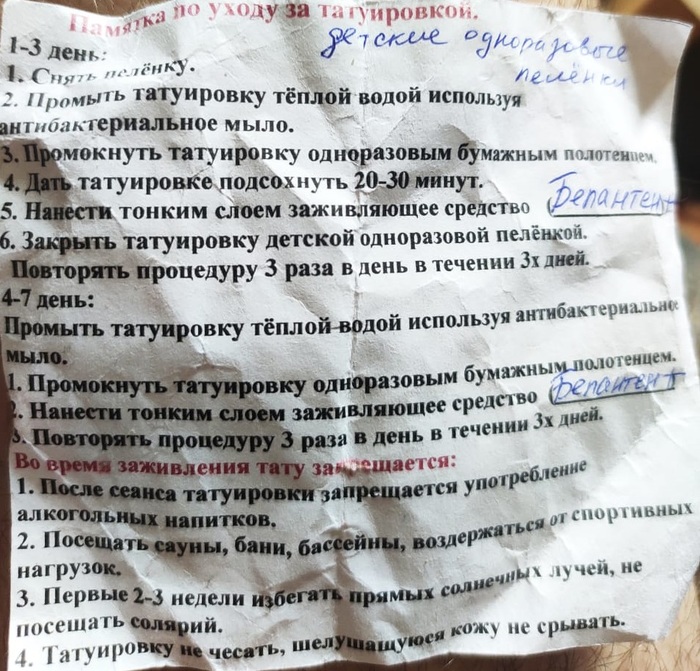 Памятка по уходу за татуировкой.
детские одноразовые
пелёнки
1-3 день:
1. Снять пелёнку.
2. Промыть татуировку тёплой водой используя
антибактериальное мыло.
3. Промокнуть татуировку одноразовым бумажным полотенцем.
4. Дать татуировке подсохнуть 20-30 минут.
5. Нанести тонким слоем заживляющее средство (Бепантен
6. Закрыть татуировку детской одноразовой пелёнкой.
Повторять процедуру 3 раза в день в течении 3х дней.
4-7 день:
Промыть татуировку тёплой водой используя антибактериальное
мыло.
1. Промокнуть татуировку одноразовым бумажным полотенцем.
2. Нанести тонким слоем заживляющее средство (Бепантен
3. Повторять процедуру 3 раза в день в течении 3х дней.
Во время заживления тату запрещается:
1. После сеанса татуировки запрещается употребление
алкогольных напитков.
2. Посещать сауны, бани, бассейны, воздержаться от спортивных
нагрузок.
3. Первые 2-3 недели избегать прямых солнечных лучей, не
посещать солярий.
4. Татуировку не чесать, шелушащуюся кожу не срывать.